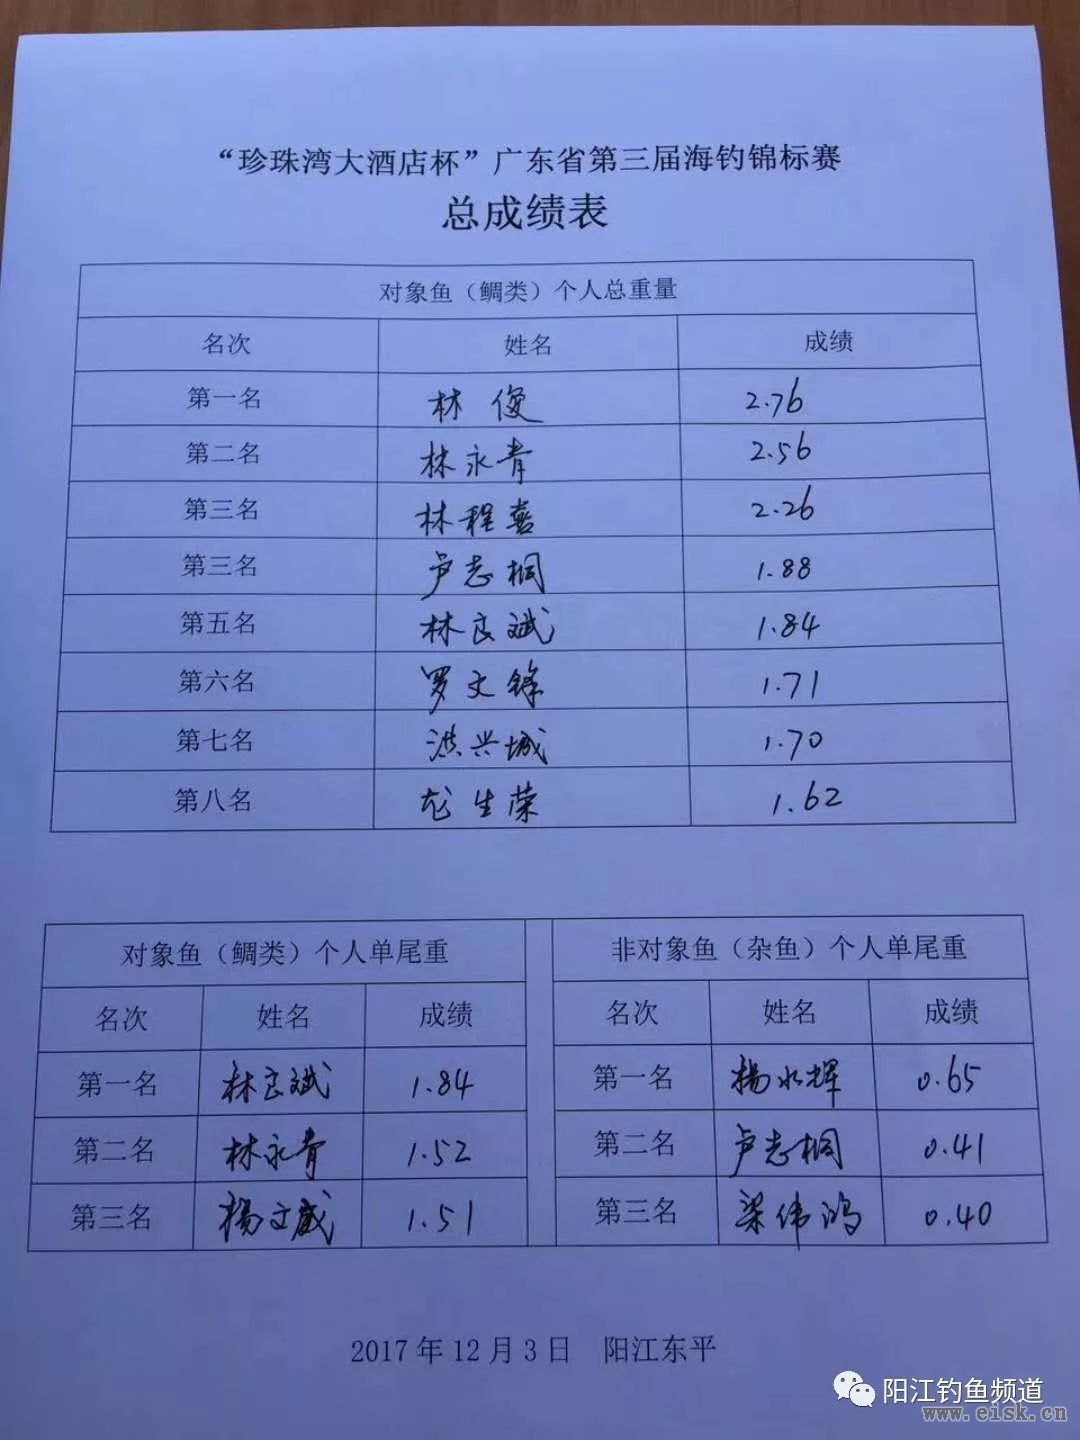 “珍珠湾大酒店杯”广东省第三届海钓锦标赛
总成绩表
对象鱼（鲷类）个人总重量
名次 姓名 成绩
第一名 林俊 2.76
第二名 林永青 2.56
第三名 林程嘉 2.26
第三名 卢志桐 1.88
第五名 林良斌 1.84
第六名 罗文锋 1.71
第七名 洪兴城 1.70
第八名 龙生荣 1.62
对象鱼（鲷类）个人单尾重
名次 姓名 成绩
第一名 林良斌 1.84
第二名 林永青 1.52
第三名 杨文威 1.51
非对象鱼（杂鱼）个人单尾重
名次 姓名 成绩
第一名 杨水辉 0.65
第二名 卢志桐 0.41
第三名 梁伟鸿 0.40
2017年12月3日 阳江东平
阳江钓鱼频道
www.eisk.cn